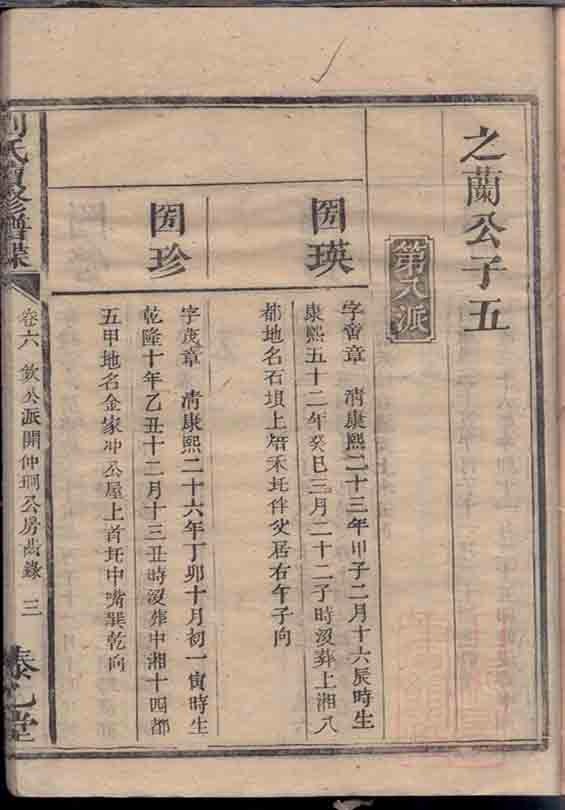 之蘭公子五
第八派
瑛
字會章 清康熙二十三年甲子二月十六辰時生
康熙五十二年癸巳三月二十二子時沒葬上湘八
都地名石壩上
圫伴父居右午子向
珍
字茂章 清康熙二十六年丁卯十月初一寅時生
乾隆十年乙丑十二月十三丑時沒葬中湘十四都
五甲地名金家冲公屋上首圫中嘴巽乾向
氏
卷六 欽公派開仲
公房齒錄 三
堂